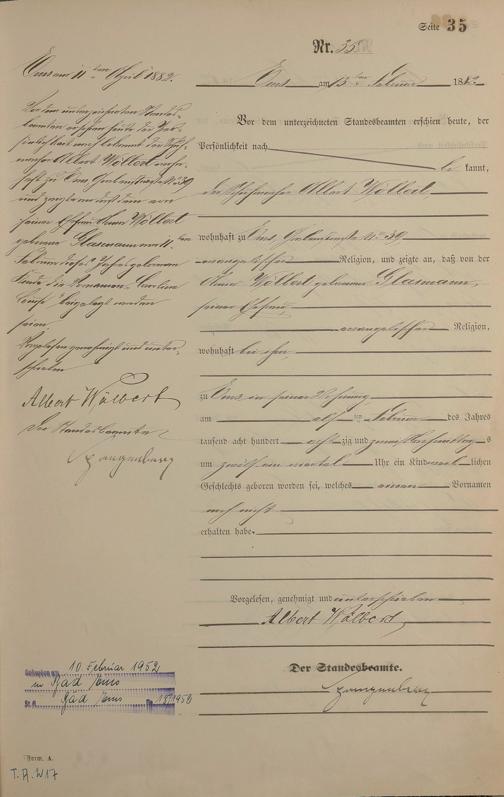 Seite 35
Nr. 35
Ems am 11ten April 1882.
Ems am 15ten Februar 1882
Vor dem unterzeichneten Standesbeamten erschien heute, der
Persönlichkeit nach
be kannt,
der Albert Wölbert
wohnhaft zu Ems, No 39
evangelischer Religion, und zeigte an, daß von der
Anna Wölbert geborner Glasmann,
seiner Ehefrau
evangelischer Religion,
wohnhaft bei ihm,
zu Ems in seiner Wohnung
am elften Februar des Jahres
tausend acht hundert achtzig und zwei Nachmittags
um zwölf ein viertel Uhr ein Kind weiblichen
Geschlechts geboren worden sei, welches einen Vornamen
noch nicht
erhalten habe.
Vorgelesen, genehmigt und unterschrieben
Albert Wölbert
Der Standesbeamte.
Vor dem unterzeichneten Standes-
beamten erschien heute der Per-
sönlichkeit nach bekannt der
Albert Wölbert wohn-
haft zu Ems No 39
und zeigte an daß dem von
seiner Ehefrau Anna Wölbert
geborner Glasmann am 11. ten
Februar dieses Jahres geborenen
Kinde die Vornamen Caroline
beigelegt worden
seien.
Vorgelesen genehmigt und unter-
schrieben
Albert Wölbert
Der Standesbeamte
Gestorben am 10. Februar 1952
in Bad Ems
St. A. Bad Ems Nr. 18/1952
Form. A.
T.A. W17